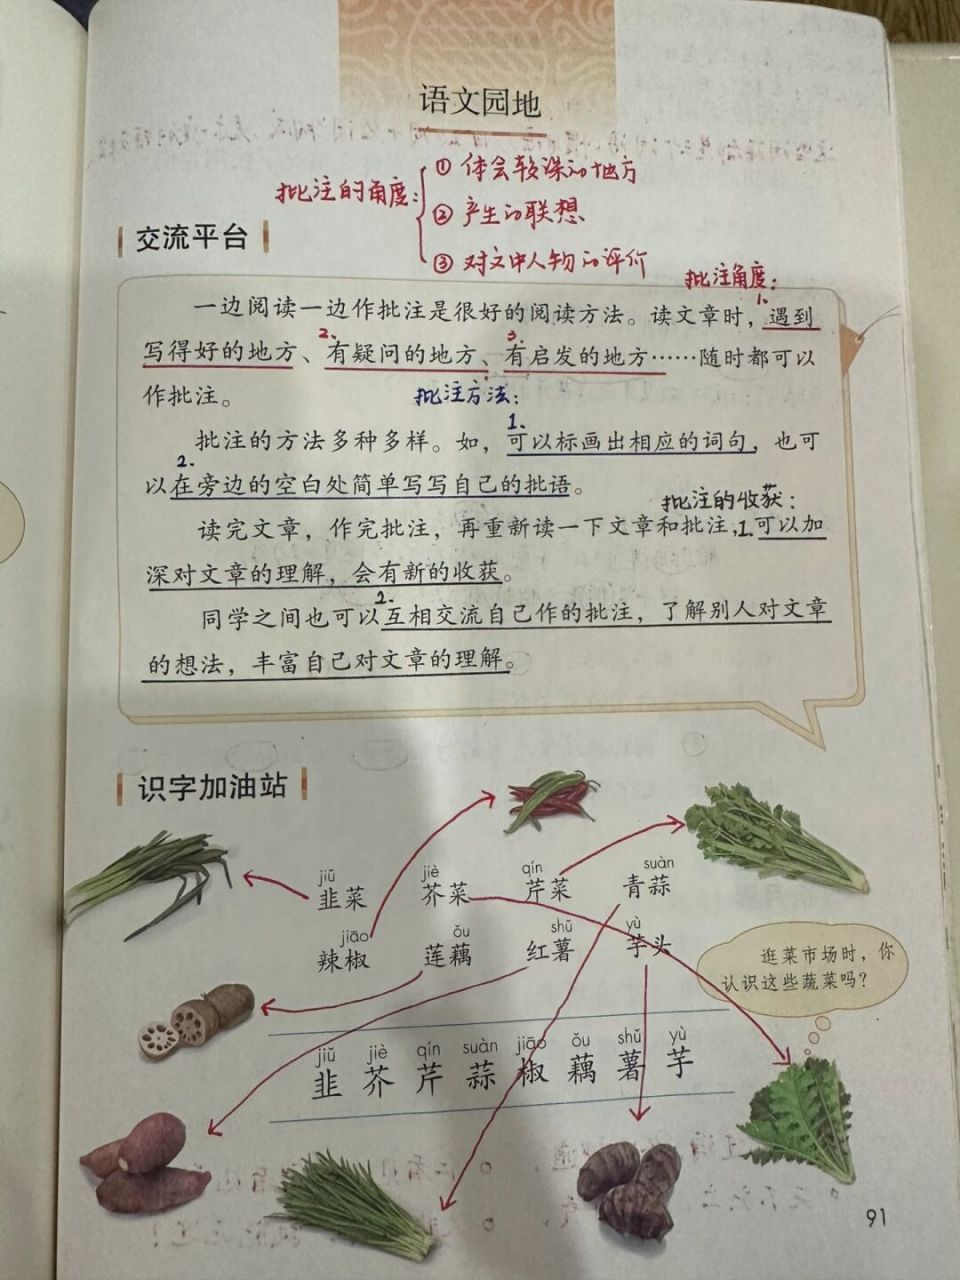 语文园地
批注的角度：
① 体会较深的地方
② 产生的联想
③ 对文中人物的评价
交流平台
批注角度：
一边阅读一边作批注是很好的阅读方法。读文章时，1.遇到
写得好的地方、2.有疑问的地方、3.有启发的地方……随时都可以
作批注。
批注方法：
批注的方法多种多样。如，1.可以标画出相应的词句，也可
以2.在旁边的空白处简单写写自己的批语。
批注的收获：
读完文章，作完批注，再重新读一下文章和批注，1.可以加
深对文章的理解，会有新的收获。
同学之间也可以2.互相交流自己作的批注，了解别人对文章
的想法，丰富自己对文章的理解。
识字加油站
jiǔ jiè qín suàn
韭菜 芥菜 芹菜 青蒜
jiāo ǒu shǔ yù
辣椒 莲藕 红薯 芋头
逛菜市场时，你
认识这些蔬菜吗？
jiǔ jiè qín suàn jiāo ǒu shǔ yù
韭 芥 芹 蒜 椒 藕 薯 芋
91